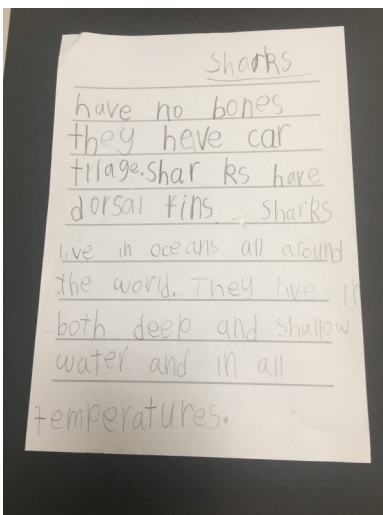 Sharks
have no bones
they heve car
trlage.Shar ks have
dorsal fins Sharks
live in oceans all around
the world. They live in
both deep and shallow
water and in all
temperatures.